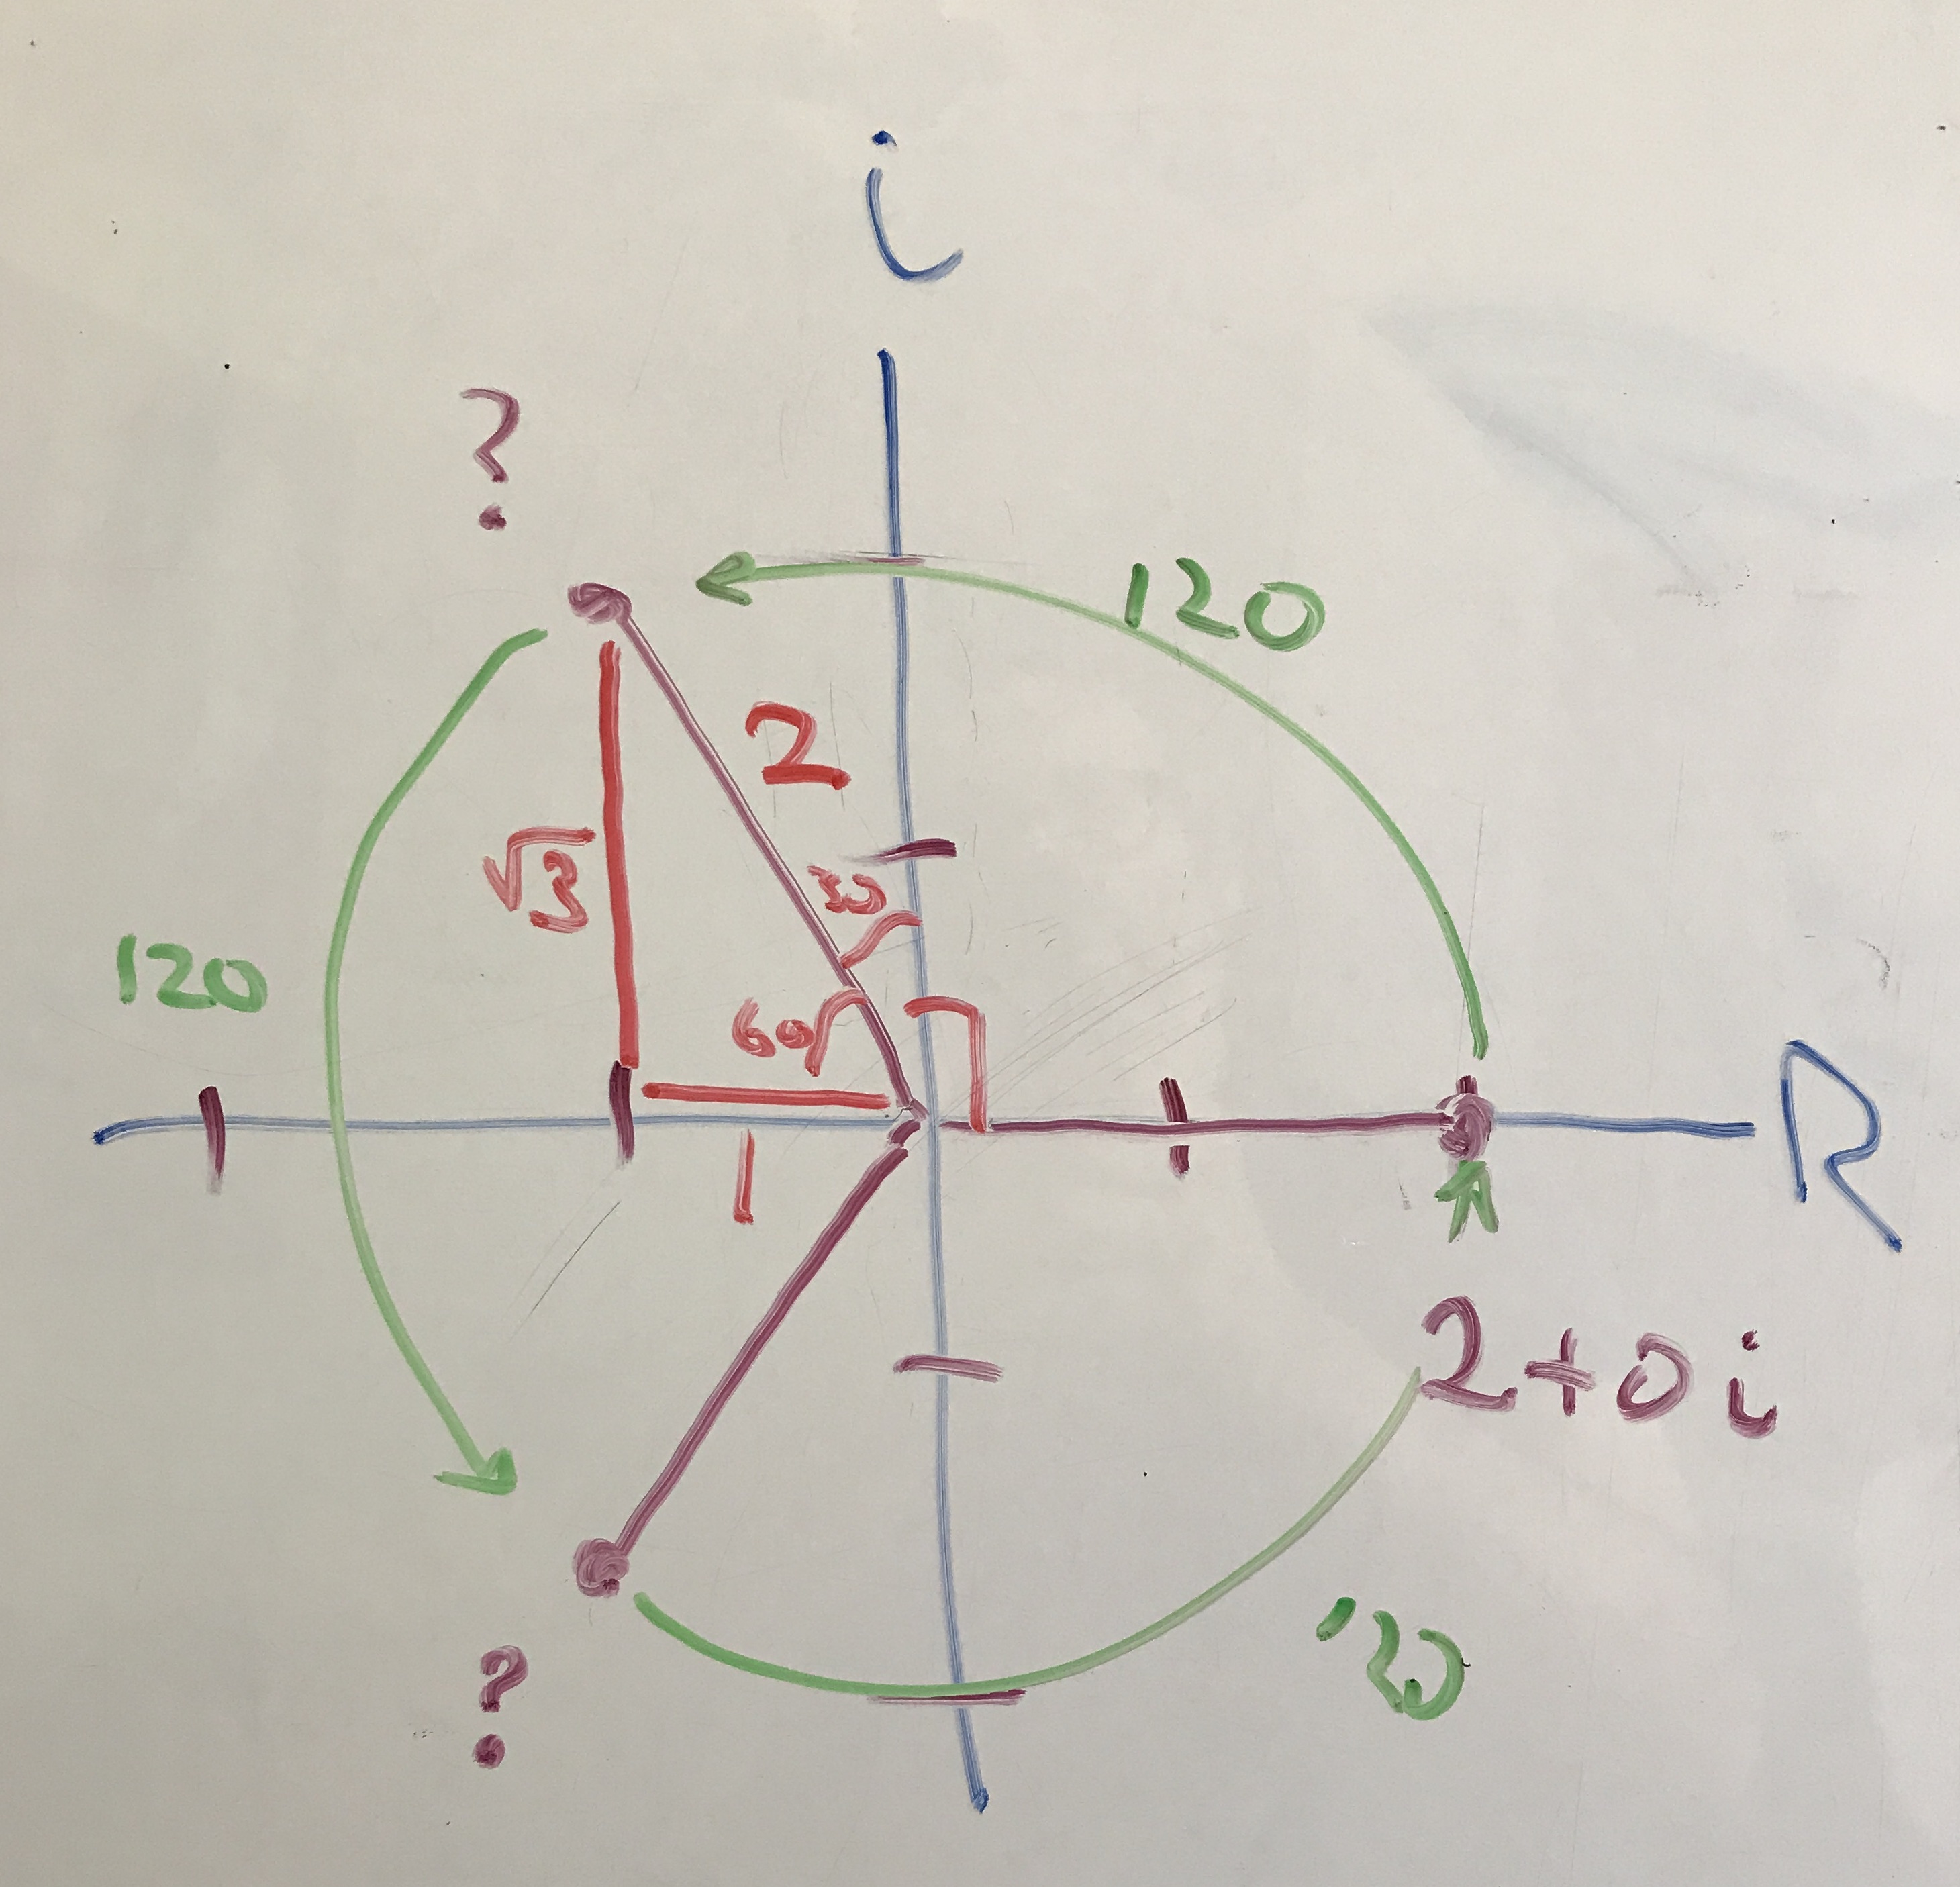 i
?
120
2
√3
30
120
60
R
1
2+0i
120
?